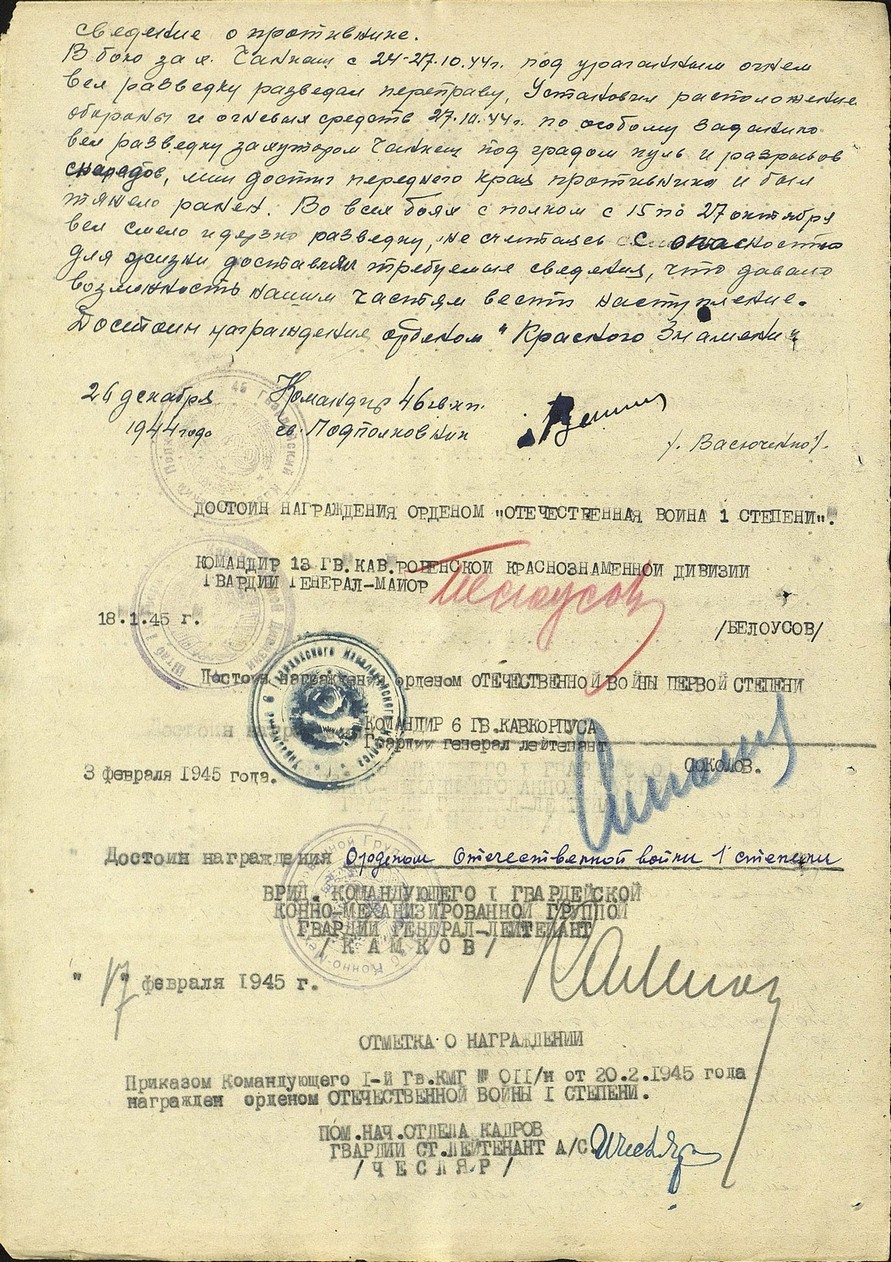 сведение о противнике.
В бою за м. Чанкащ с 24-27.10.44г. под ураганным огнем
вел разведку разведал переправу, Установил расположение
обороны и огневых средств 27.10.44г. по особому заданию
вел разведку за хутором Чанкащ под градом пуль и разрывов
снарядов, мин достиг переднего края противника и был
тяжело ранен. Во всех боях с полком с 15 по 27 октября
вел смело и дерзко разведку, не считаясь с опасностью
для жизни доставлял требуемые сведения, что давало
возможность нашим частям вести наступление.
Достоин награждения орденом "Красного Знамени"
26 декабря Командир 46 гв.кп.
1944 года гв. Подполковник
/. Васюченко/.
ДОСТОИН НАГРАЖДЕНИЯ ОРДЕНОМ "ОТЕЧЕСТВЕННАЯ ВОИНА 1 СТЕПЕНИ".
КОМАНДИР 13 ГВ.КАВ.РОВЕНСКОИ КРАСНОЗНАМЕННОИ ДИВИЗИИ
ГВАРДИИ ГЕНЕРАЛ-МАИОР Белоусов
18.1.45 г.
/БЕЛОУСОВ/
Достоин награждения орденом ОТЕЧЕСТВЕННОЙ ВОЙНЫ ПЕРВОЙ СТЕПЕНИ
КОМАНДИР 6 ГВ.КАВКОРПУСА
Гвардии генерал лейтенант
СОКОЛОВ.
3 февраля 1945 года.
Достоин награждения Орденом Отечественной войны 1 степени
ВРИД. КОМАНДУЮЩЕГО I ГВАРДЕЙСКОЙ
КОННО-МЕХАНИЗИРОВАННОЙ ГРУППОЙ
ГВАРДИИ ГЕНЕРАЛ-ЛЕЙТЕНАНТ
/ К А М К О В /
"17" февраля 1945 г.
ОТМЕТКА О НАГРАЖДЕНИИ
Приказом Командующего I-й Гв.КМГ № 011/н от 20.2.1945 года
награжден орденом ОТЕЧЕСТВЕННОЙ ВОЙНЫ I СТЕПЕНИ.
ПОМ.НАЧ.ОТДЕЛА КАДРОВ
ГВАРДИИ СТ.ЛЕЙТЕНАНТ А/С
/ Ч Е С Л Я Р /